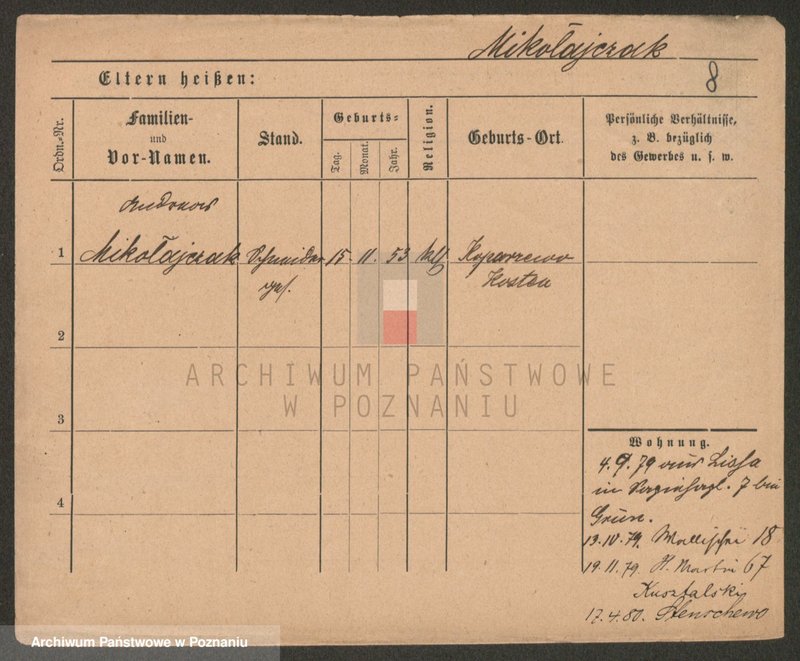 Mikołajczak
8
Eltern heißen:
Ordn.-Nr.
Familien-
und
Vor-Namen.
Stand.
Geburts-
Tag.
Monat.
Jahr.
Religion.
Geburts-Ort.
Persönliche Verhältnisse,
z. B. bezüglich
des Gewerbes u. s. w.
1
Mikołajczak
15
11.
53
Kosten
2
ARCHIWUM PAŃSTWOWE
W POZNANIU
3
Wohnung.
4. 9. 79 aus Lissa
in 7 bei
Grün.
4
13.10.79. Wallischei 18
19.11.79. St. Martin 67
17.4.80. Stenschewo
Archiwum Państwowe w Poznaniu